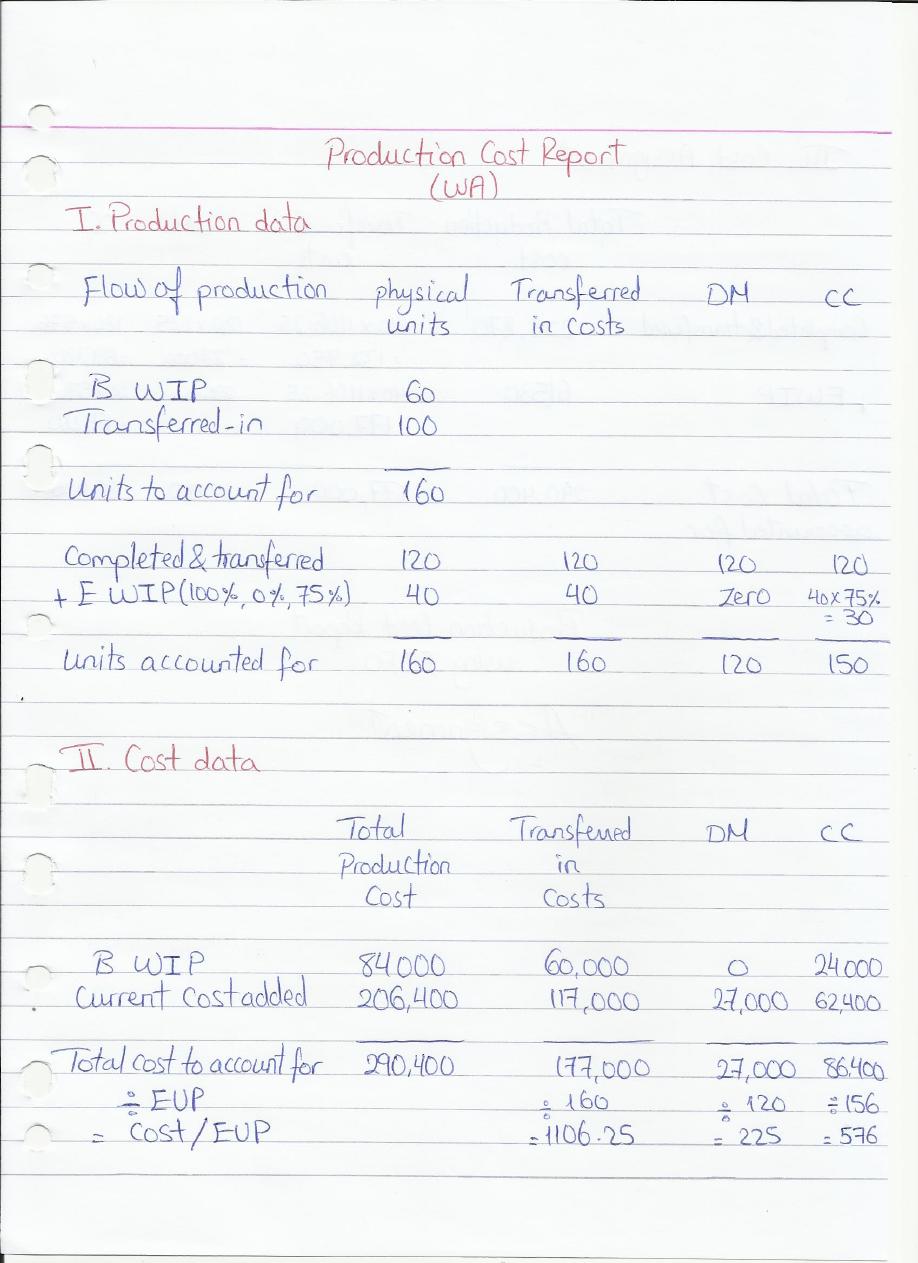 Production Cost Report
(WA)
I. Production data
Flow of production physical units Transferred in costs DM CC
B WIP 60
Transferred-in 100
Units to account for 160
Completed & transferred 120 120 120 120
+ E WIP (100%, 0%, 75%) 40 40 Zero 40 x 75% = 30
Units accounted for 160 160 120 150
II. Cost data
Total Production Cost Transferred in Costs DM CC
B WIP 84000 60,000 0 24000
Current Cost added 206,400 117,000 27,000 62,400
Total cost to account for 290,400 177,000 27,000 86,400
÷ EUP ÷ 160 ÷ 120 ÷ 156
= Cost/EUP = 1106.25 = 225 = 576